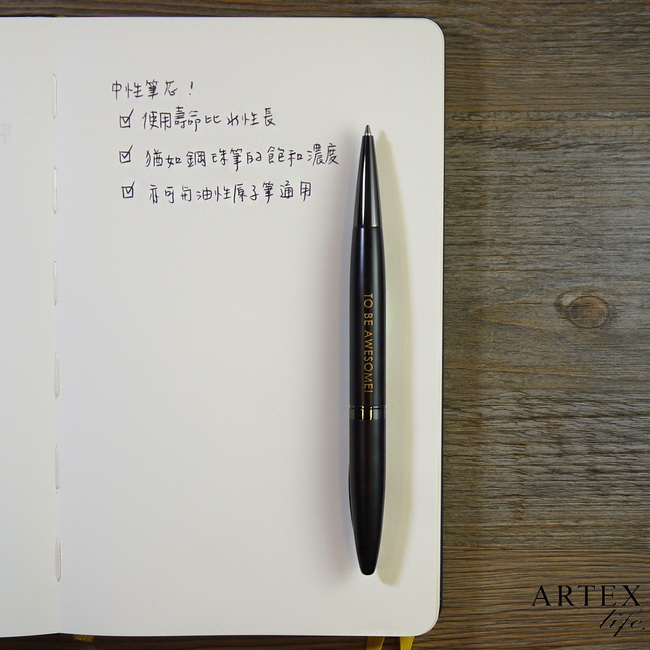 中性筆芯！
☑ 使用壽命比水性長
☑ 猶如鋼珠筆的飽和濃度
☑ 亦可与油性原子筆通用
TO BE AWESOME!
ARTEX
life.